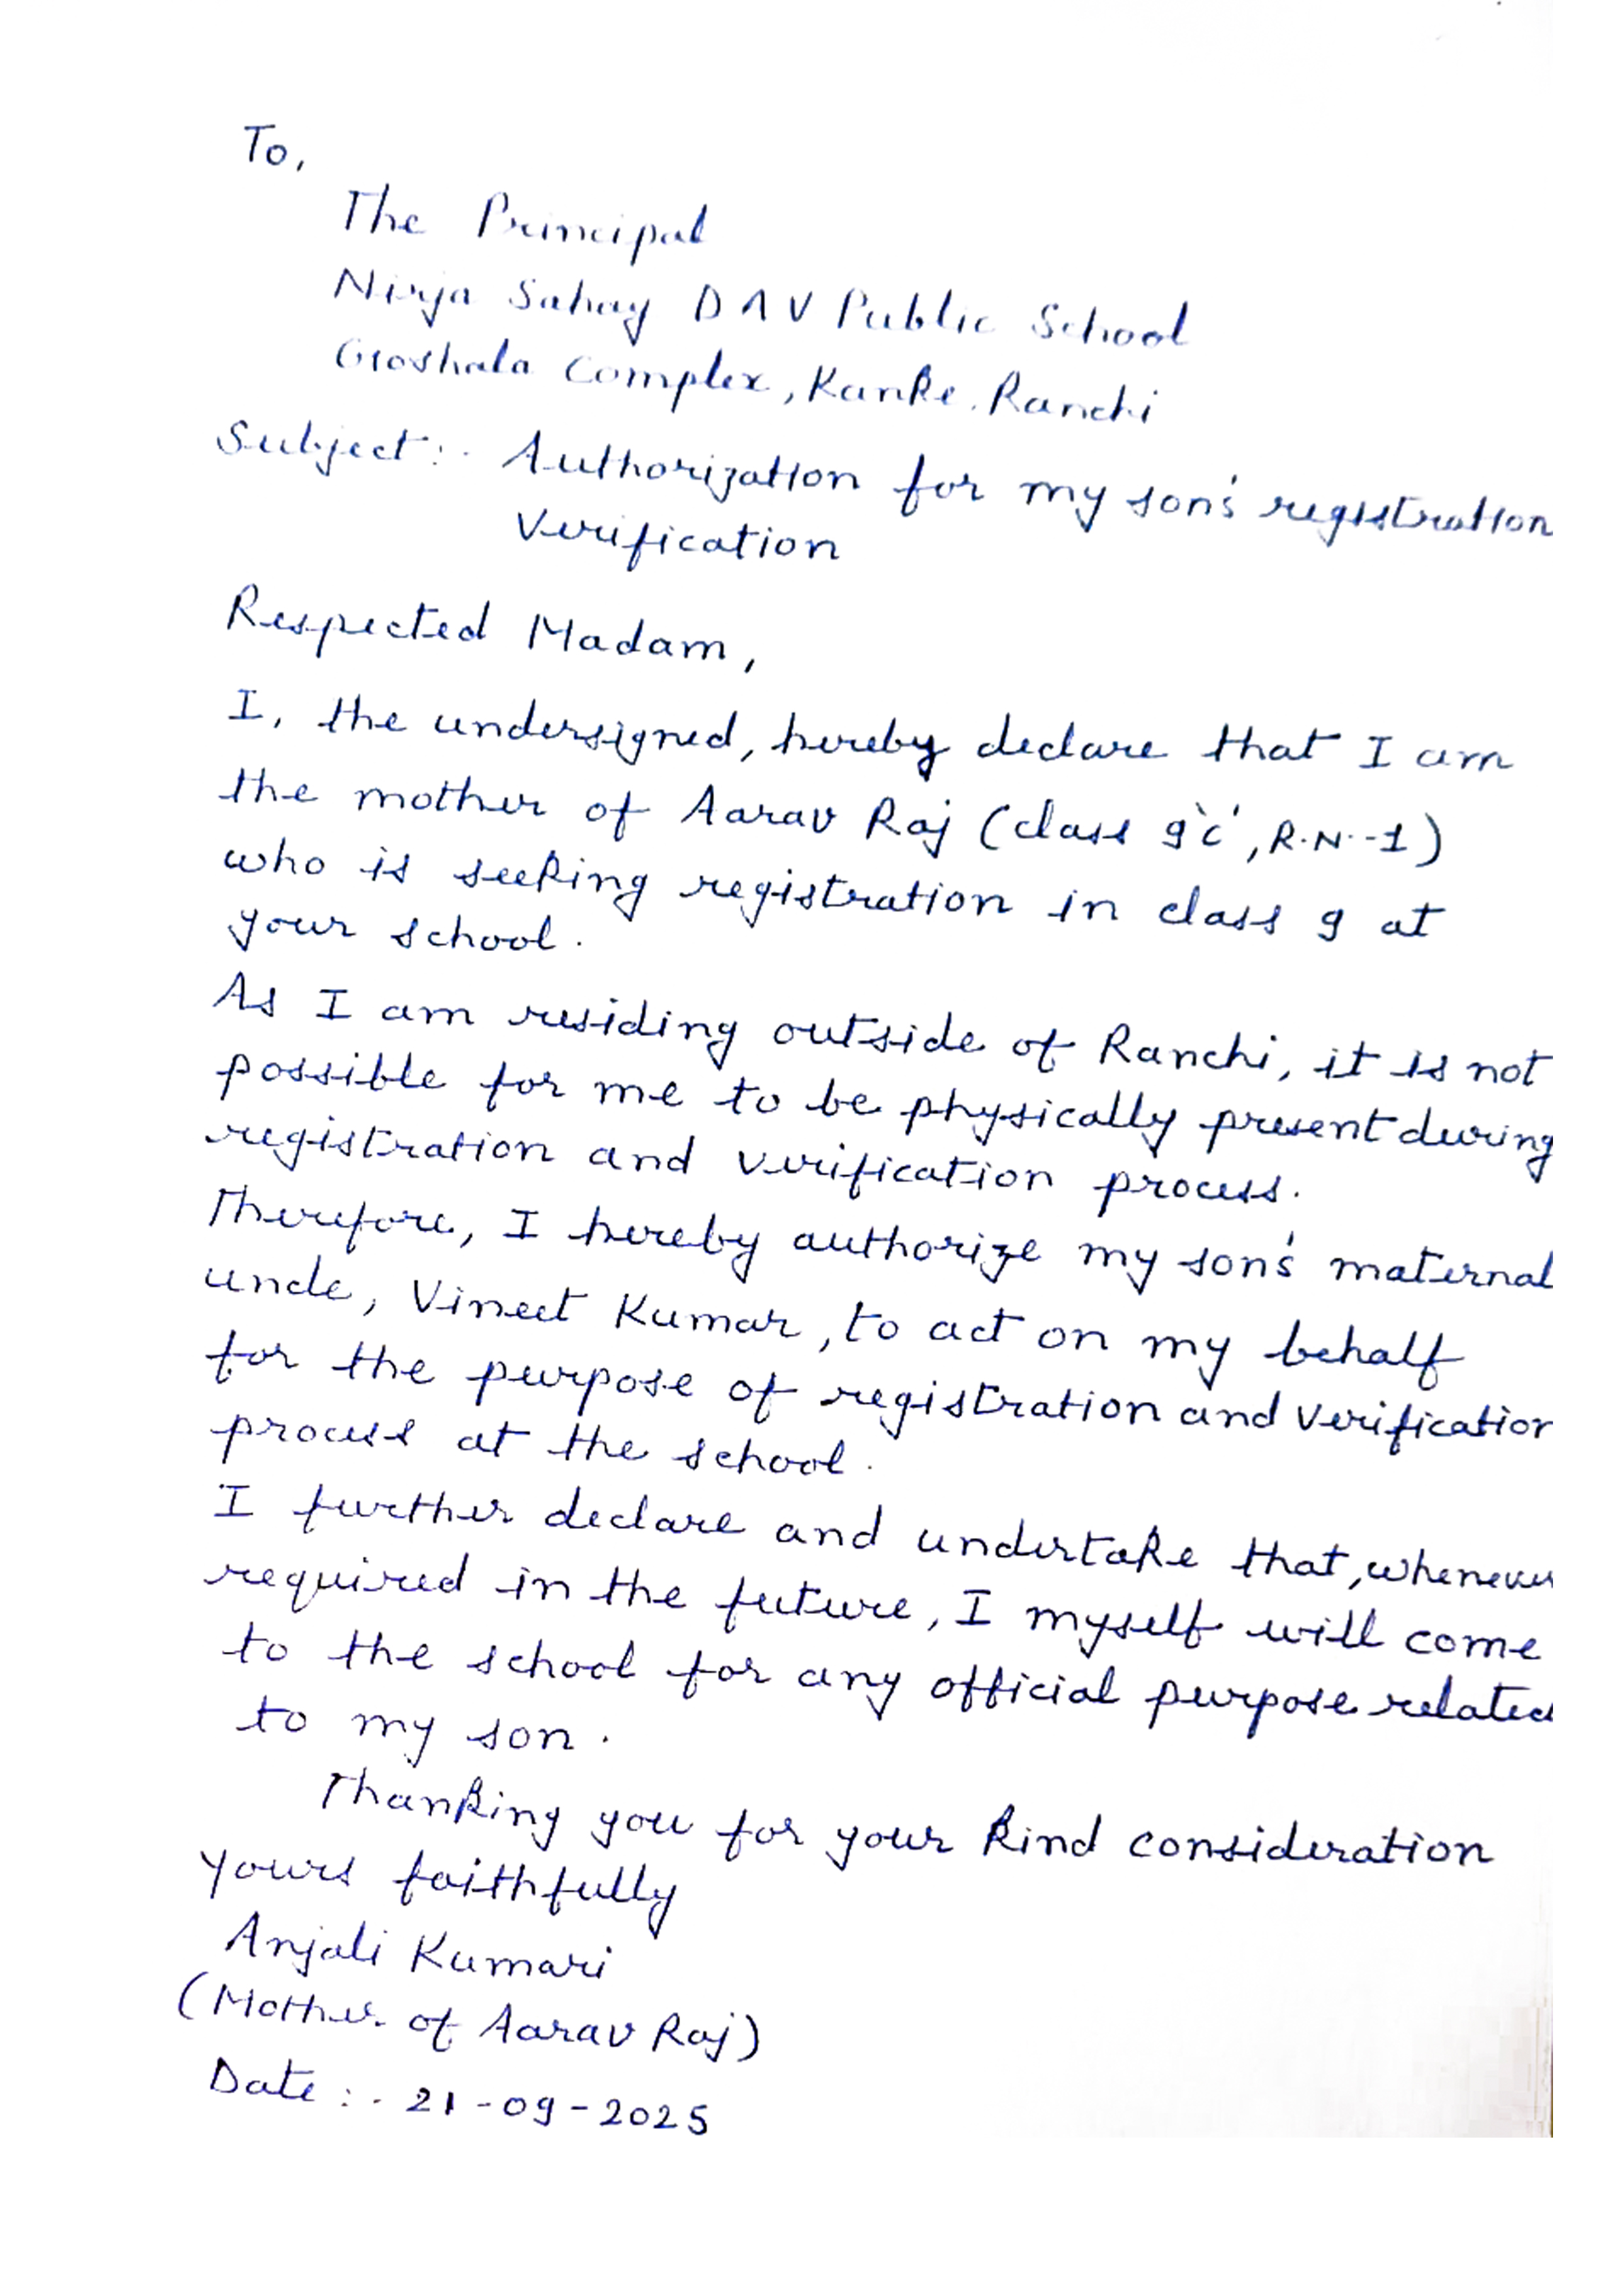 To,
The Principal
Nirja Sahay DAV Public School
Goshala Complex, Kanke. Ranchi
Subject:- Authorization for my son's registration
Verification
Respected Madam,
I, the undersigned, hereby declare that I am
the mother of Aarav Raj (class 9 'C', R.N.-1)
who is seeking registration in class 9 at
your school.
As I am residing outside of Ranchi, it is not
possible for me to be physically present during
registration and verification process.
Therefore, I hereby authorize my son's maternal
uncle, Vineet Kumar, to act on my behalf
for the purpose of registration and verification
process at the school.
I further declare and undertake that, whenever
required in the future, I myself will come
to the school for any official purpose related
to my son.
Thanking you for your kind consideration
Yours faithfully
Anjali Kumari
(Mother of Aarav Raj)
Date:- 21-09-2025